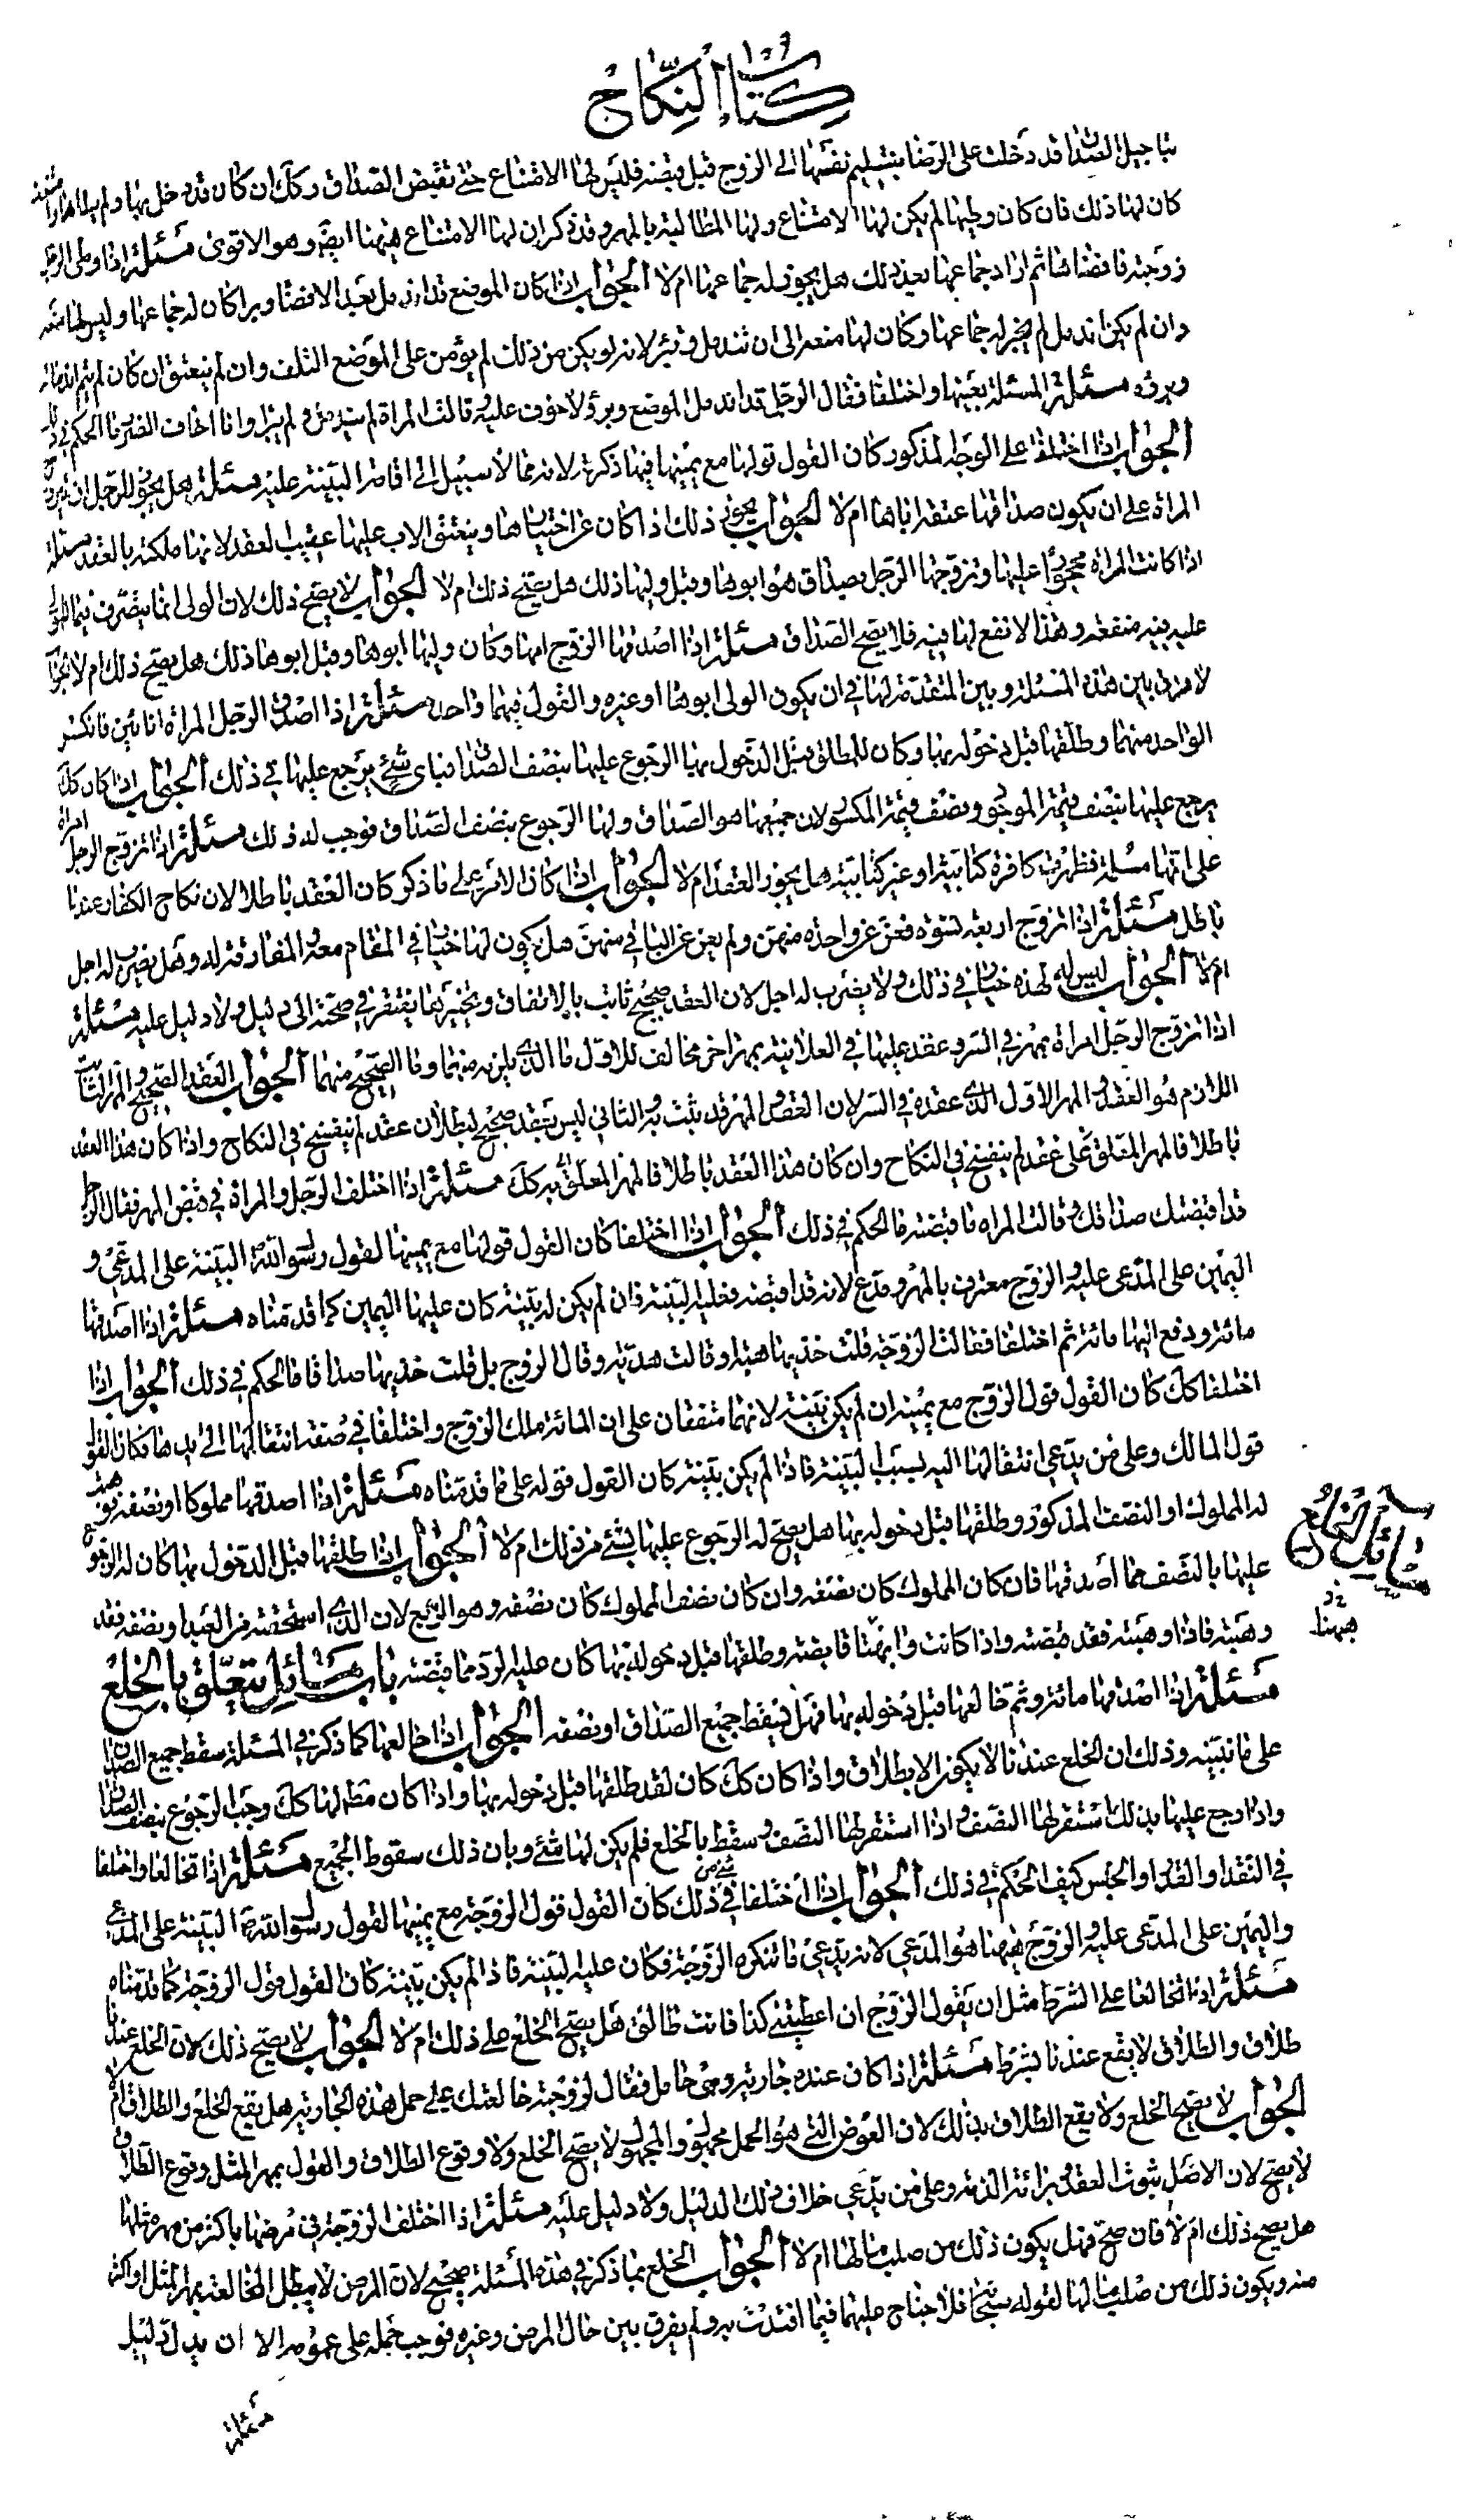 ١٠٦
كتاب النكاح
بتاجيل الصداق قد دخلت على الرضا بتسليم نفسها الى الزوج قبل قبضه فليس لها الامتناع حتى تقبض الصداق وكك ان كان قد دخل بها ولم يطاها
كان لها ذلك فان كان وطيها لم يكن لها الامتناع ولها المطالبة بالمهر وقد ذكر ان لها الامتناع ههنا ايضا وهو الاقوى مسئلة اذا وطى الرجل
زوجته فافضاها ثم اراد جماعها بعد ذلك هل يجوز له جماعها ام لا الجواب اذا كان الموضع قد اندمل بعد الافضا وبرا كان له جماعها وليس لها منعه
وان لم يكن اندمل لم يجز له جماعها وكان لها منعه الى ان تندمل وتبرء لانه لو يكن من ذلك لم يؤمن على الموضع التلف وان لم ينعتق ان كان لم يتم اندماله
وبرؤه مسئلة المسئلة بعينها واختلفا فقال الرجل قد اندمل الموضع وبرؤ لا خوف عليه قالت المراة لم يندمل ولم يبرا وانا اخاف الضرر ما الحكم في ذلك
الجواب اذا اختلفا على الوجه المذكور كان القول قولها مع يمينها فيما ذكرته لانه مما لا سبيل الى اقامة البينة عليه مسئلة هل يجوز للرجل ان يتزوج
المراة على ان يكون صداقها عتقه اباها ام لا الجواب يجوز ذلك اذا كان عن اختيارها وينعتق الاب عليها عقيب العقد لانها ملكته بالعقد مسئلة
اذا كانت المراة محجورا عليها وتزوجها الرجل بصداق هو ابوها وقبل وليها ذلك هل يصح ذلك ام لا الجواب لا يصح ذلك لان الولى انما يتصرف فيما للمولى
عليه فيه منفعة وهذا لا نفع لها فيه فلا يصح الصداق مسئلة اذا اصدقها الزوج امها وكان وليها ابوها وقبل ابوها ذلك هل يصح ذلك ام لا الجواب
لا فرق بين هذه المسئلة وبين المتقدمة لها في ان يكون الولى ابوها او غيره والقول فيهما واحد مسئلة اذا اصدق الرجل المراة انائين فانكسر
الواحد منهما وطلقها قبل دخوله بها وكان للمطلق قبل الدخول بها الرجوع عليها بنصف الصداق فباى شئ يرجع عليها في ذلك الجواب اذا كان كك
يرجع عليها بنصف قيمة الموجود ونصف قيمة المكسور لان جميعها هو الصداق ولها الرجوع بنصف الصداق فوجب له ذلك مسئلة اذا تزوج الرجل امراة
على انها مسلمة فظهرت كافرة كتابية او غير كتابية هل يجوز العقد ام لا الجواب اذا كان الامر على ما ذكر كان العقد باطلا لان نكاح الكفار عندنا
باطل مسئلة اذا تزوج اربعة نسوة فعن عن واحدة منهن ولم يعن عن الباقي منهن هل يكون لها خيار في المقام معه او المفارقة له وهل يضرب له اجل
ام لا الجواب ليس له لهذه خيار في ذلك ولا يضرب له اجل لان العقد صحيح ثابت بالاتفاق وتخييرها يفتقر في صحته الى دليل ولا دليل عليه مسئلة
اذا تزوج الرجل امراة بمهر في السر وعقد عليها في العلانية بمهر اخر مخالف للاول ما الذي يلزمه منهما وما الصحيح منهما الجواب العقد الصحيح والمهر الثابت
اللازم هو العقد والمهر الاول الذي عقده في السر لان العقد والمهر قد ثبت به والثاني ليس بعقد صحيح لبطلان عقد لم ينفسخ في النكاح واذا كان هذا العقد
باطلا فالمهر المعلق على عقد لم ينفسخ في النكاح وان كان هذا العقد باطلا فالمهر المعلق به كك مسئلة اذا اختلف الرجل والمراة في قبض المهر فقال الرجل
قد اقبضتك صداقك وقالت المراه ما قبضته ما الحكم في ذلك الجواب اذا اختلفا كان القول قولها مع يمينها لقول رسول الله ص البينة على المدعى و
اليمين على المدعى عليه والزوج معترف بالمهر ومدع لانه قد اقبضه فعليه البينة فان لم يكن له بينة كان عليها اليمين كما قدمناه مسئلة اذا اصدقها
مائة ودفع اليها مائة ثم اختلفا فقالت الزوجة قلت خذيها هبة او قالت هدية وقال الزوج بل قلت خذيها صداقا ما الحكم في ذلك الجواب اذا
اختلفا كك كان القول قول الزوج مع يمينه ان لم يكن بينة لانهما متفقان على ان المائة ملك الزوج واختلفا في صفة انتقالها الى يدها فكان القول
قول المالك وعلى من يدعى انتقالها اليه بسبب البينة فاذا لم يكن بينة كان القول قوله على ما قدمناه مسئلة اذا اصدقها مملوكا او نصفه فوهبته
له المملوك او النصف المذكور وطلقها قبل دخوله بها هل يصح له الرجوع عليها بشئ من ذلك ام لا الجواب اذا طلقها قبل الدخول بها كان له الرجوع
عليها بالنصف مما اصدقها فان كان المملوك كان نصفه وان كان نصف المملوك كان نصفه وهو الربع لان الذي استحقته من العبد او نصفه فقد
وهبته فاذا وهبته فقد قبضته واذا كانت وابنها قابضة وطلقها قبل دخوله بها كان عليه الرد مما قبضته باب مسائل يتعلق بالخلع
مسئلة اذا اصدقها مائة وثم خالعها قبل دخوله بها فهل يسقط جميع الصداق او نصفه الجواب اذا خالعها كما ذكر في المسئلة سقط جميع الصداق
على ما نبينه وذلك ان الخلع عندنا لا يكون الا بطلاق واذا كان كك كان لقد طلقها قبل دخوله بها واذا كان مطلقا لها كك وجب الرجوع بنصف الصداق
واذا رجع عليها بذلك استقر لها النصف واذا استقر لها النصف وسقط بالخلع فلم يكن لها شئ وبان ذلك سقوط الجميع مسئلة اذا تخالعا واختلفا
في النقد او القدر او الجنس كيف الحكم في ذلك الجواب اذا اختلفا في شئ من ذلك كان القول قول الزوجة مع يمينها لقول رسول الله ص البينة على المدعى
واليمين على المدعى عليه والزوج ههنا هو المدعى لانه يدعى ما تنكره الزوجة فكان عليه البينة فاذا لم يكن بينة كان القول قول الزوجة كما قدمناه
مسئلة اذا تخالعا على الشرط مثل ان يقول الزوج ان اعطيتني كذا فانت طالق هل يصح الخلع على ذلك ام لا الجواب لا يصح ذلك لان الخلع عندنا
طلاق والطلاق لا يقع عندنا بشرط مسئلة اذا كان عنده جارية وهي حامل فقال لزوجته خالعتك على حمل هذه الجارية هل يقع الخلع والطلاق ام لا
الجواب لا يصح الخلع ولا يقع الطلاق بذلك لان العوض الذي هو الحمل مجهول والمجهول لا يصح الخلع ولا وقوع الطلاق والقول بمهر المثل وقوع الطلاق
لا يصح لان الاصل ثبوت العقد وبرائة الذمة وعلى من يدعى خلاف ذلك الدليل ولا دليل عليه مسئلة اذا اختلعت الزوجة في مرضها باكثر من مهر مثلها
هل يصح ذلك ام لا فان صح فهل يكون ذلك من صلب مالها ام لا الجواب الخلع بما ذكر في هذه المسئلة صحيح لان المرض لا يبطل المخالعة بمهر المثل او اكثر
منه ويكون ذلك من صلب مالها لقوله سبحانه فلا جناح عليهما فيما افتدت به ولم يفرق بين حال المرض وغيره فوجب حمله على عمومه الا ان يدل دليل
مسئلة